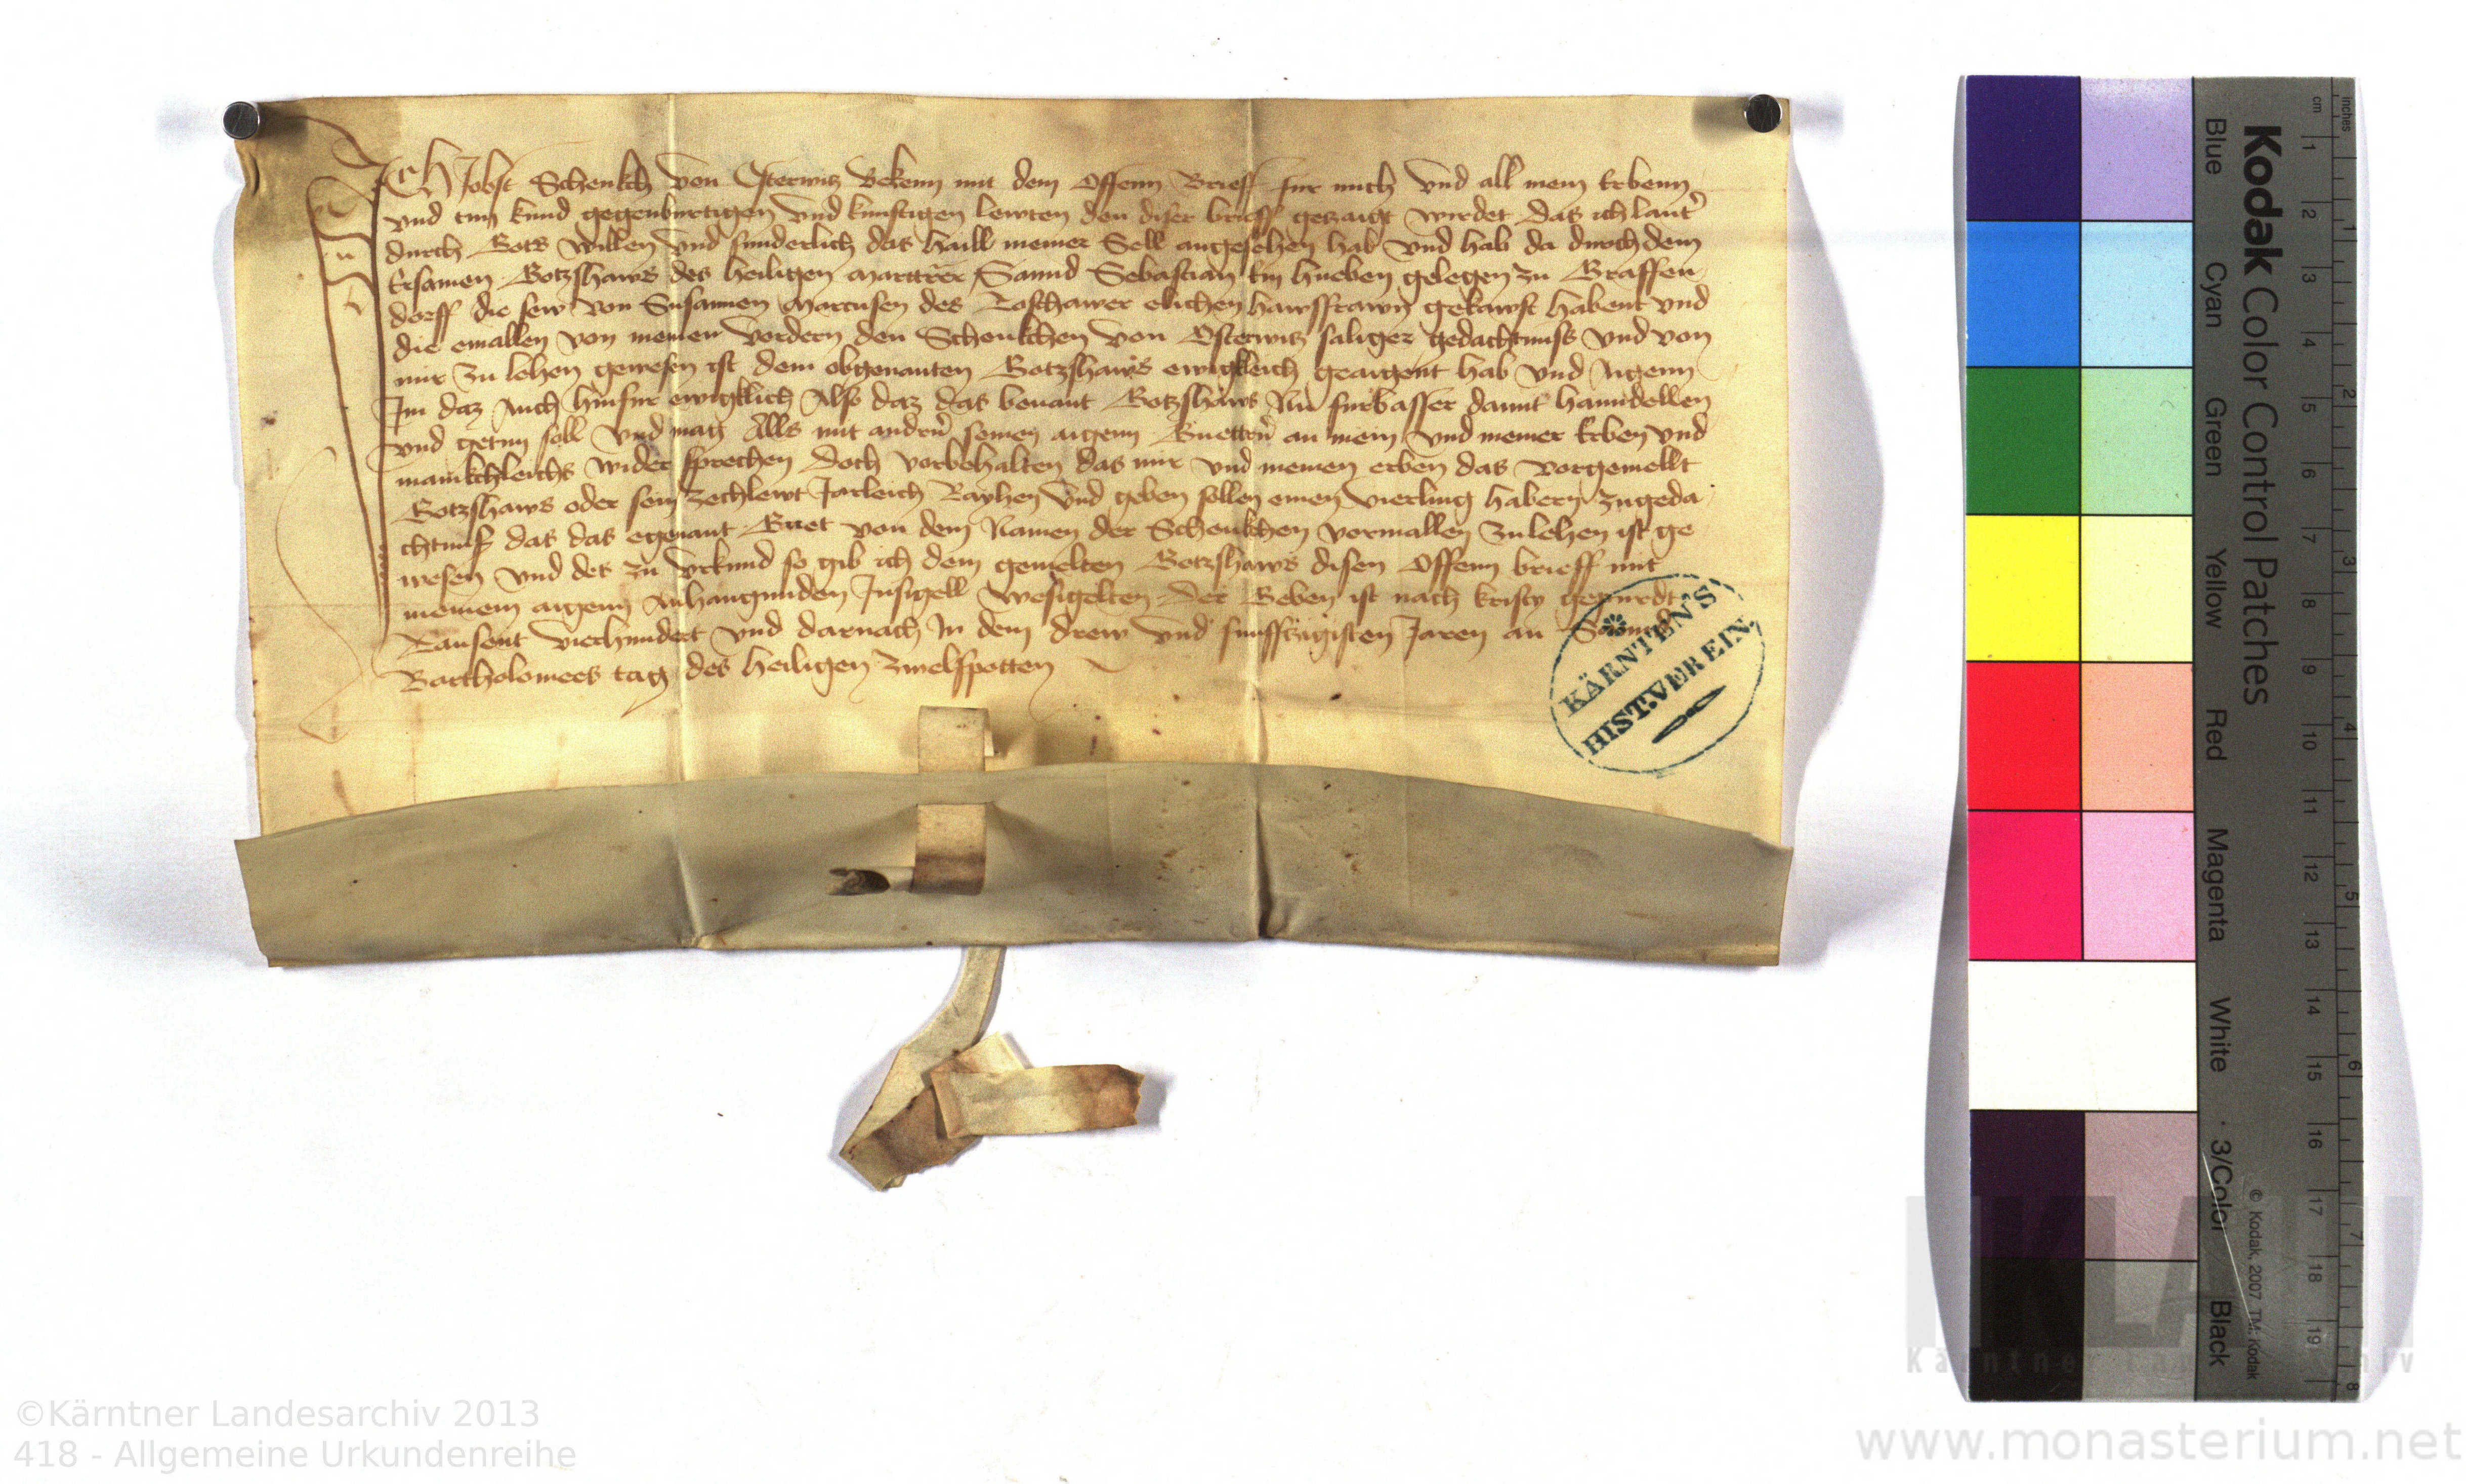 Ich Jobst Schenkch von Osterwitz Bekenn mit dem Offenn Brieff fur mich vnd all mein Erbenn
vnd tun kund gegenburtigen vnd kunftigen lewten den diser brieff getzaigt wirdet das ich laut'
durch Gots willen vnd sunderlich das haill meiner Sell angesehen hab vnd hab da durch dem
Ersamen Gotzshaws des heiligen martrer Sannd Sebastian ein hueben gelegen zu Graffen
dorff die sew von Susannen Marcusen des Toschawer elichen hawsfrawn gekawft habent vnd
die emallen von meinen vordern den Schenkchen von Osterwitz saliger gedachtnuss vnd von
mir zu lehen gewesen ist dem obgenanten Gotzshaws ewigkleich geaigent hab vnd Aigenn
Im daz Auch hinfur ewigklich Also daz das benant Gotzshaws Nu furbasser damit hanndellen
vnd getun soll vnd mag Alls mit andern seinen aigenn Guettern an mein vnd meiner Erben vnd
manikchleichs wider sprechen Doch vorbehalten das mir vnd meinen erben das vorgemellt
Gotzshaws oder sein zechlewt Jarleich Rayhen vnd geben sollen einen vierling habern zugeda
chtnuss das das egenant Guet von dem Namen der Schenkchen vormallen zu lehen ist ge
wesen vnd des zu vrkund so gib ich dem gemelten Gotzshaws disen Offenn brieff mit
meinem aigenn Anhangunden Insigell Wesigelten Der Geben ist nach kristy gepurdt
Tausent vierhundert vnd darnach In dem drew vnd funfftzigisten Jaren an Sannd
Bartholomees tag des heiligen zwelfpotten
KÄRNTEN'S
HIST.VEREIN.
Kodak Color Control Patches
Blue Cyan Green Yellow Red Magenta White 3/Color Black
© Kodak, 2007 TM: Kodak
inches 1 2 3 4 5 6 7 8
cm 1 2 3 4 5 6 7 8 9 10 11 12 13 14 15 16 17 18 19
KLA
©Kärntner Landesarchiv 2013
418 - Allgemeine Urkundenreihe
www.monasterium.net